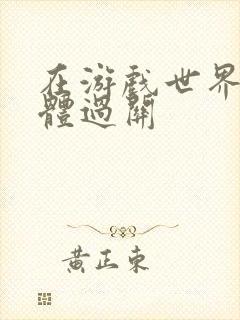 在游戏世界
體過關
黄正東